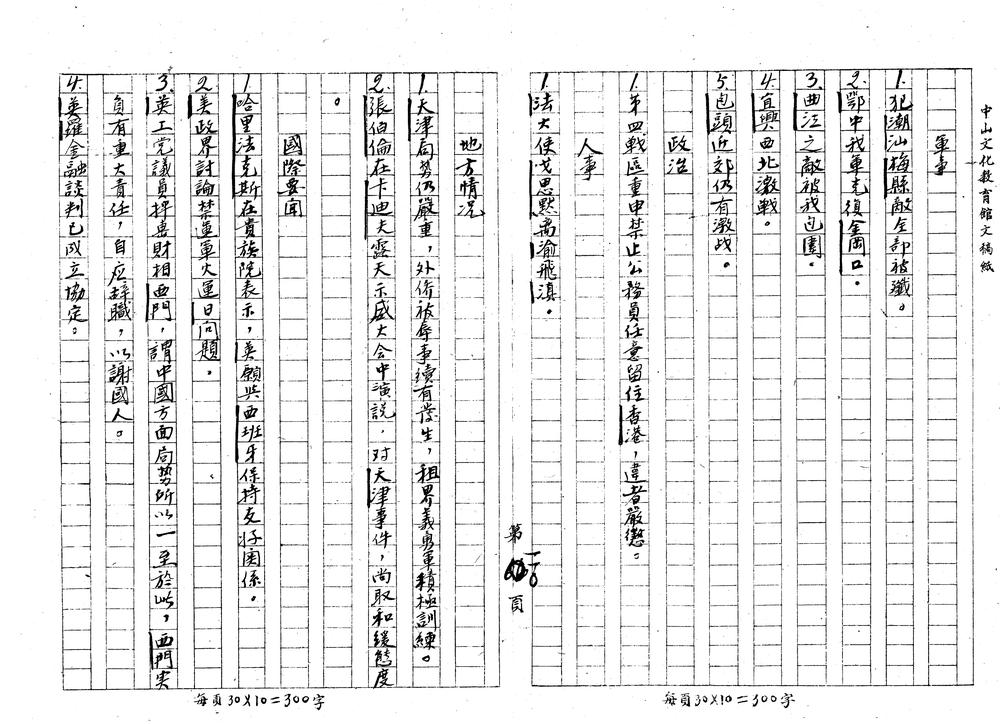 中山文化教育館文稿紙
軍事
1.犯潮汕梅縣敵全部被殲。
2.鄂中我軍克復金岡口。
3.曲江之敵被我包圍。
4.宜興西北激戰。
5.包頭近郊仍有激战。
政治
1.第四戰區重申禁止公務員任意留住香港，違者嚴懲。
人事
1.法大使戈思默离渝飛滇。
每頁30×10=300字
第 頁
地方情况
1.天津局势仍嚴重，外侨被辱事续有發生，租界義勇軍積極訓練。
2.張伯倫在卡迪夫露天示威大会中演説，对天津事件，尚取和緩態度
。
國際要聞
1.哈里法克斯在貴族院表示，英願與西班牙保持友好関係。
2.美政界討論禁運軍火運日问題。
3.英工党議員抨击財相西門，謂中國方面局势所以一至於此，西門实
負有重大責任，自应辞職，以謝國人。
4.英羅金融談判已成立協定。
每頁30×10=300字